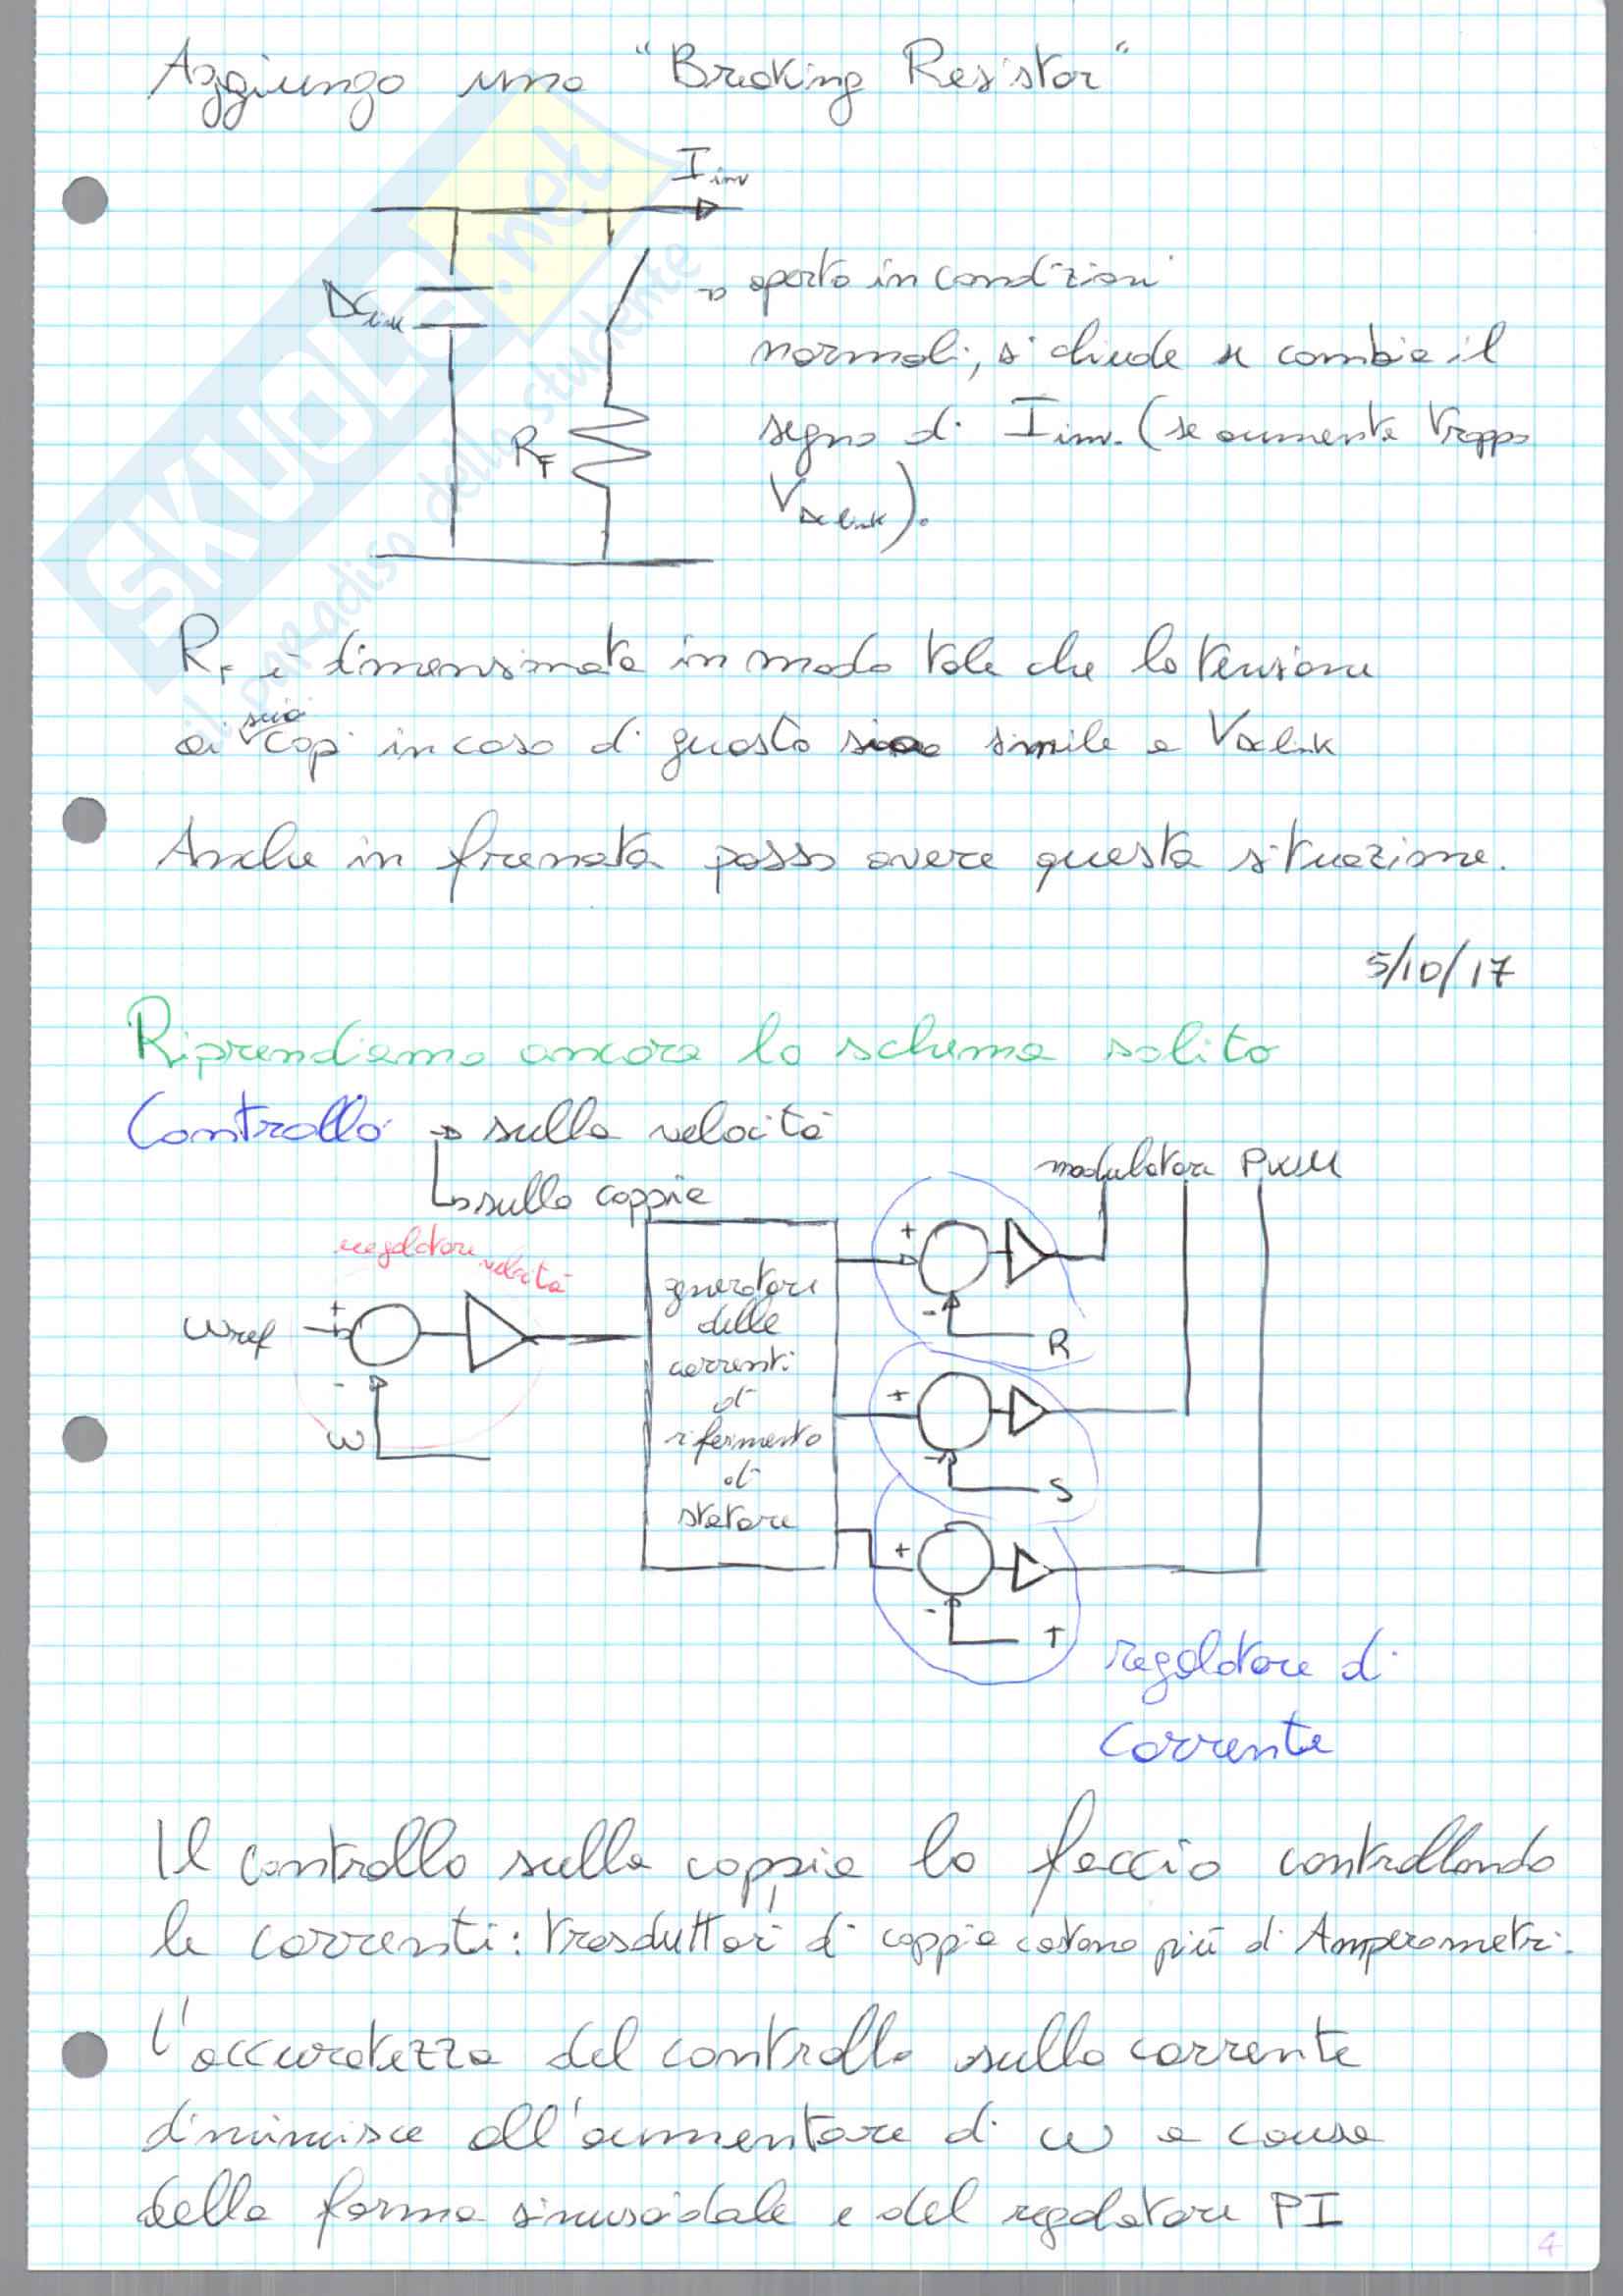 Aggiungo una "Breaking Resistor"
I inv
DC link
→ aperto in condizioni
normali, si chiude se cambia il
segno di I inv. (se aumenta troppo
V DC link).
R F
R F è dimensionata in modo tale che la tensione
ai suoi capi in caso di guasto sia simile a V DC link
Anche in frenata posso avere questa situazione.
5/10/17
Riprendiamo ancora lo schema solito
Controllo → sulla velocità
→ sulla coppia
modulatore PWM
regolatore velocità
ωref
+
-
ω
generatore
delle
correnti
di
riferimento
di
statore
+
-
R
+
-
S
+
-
T
regolatore di
corrente
Il controllo sulla coppia lo faccio controllando
le correnti: trasduttori di coppia costano più di Amperometri.
L'accuratezza del controllo sulla corrente
diminuisce all'aumentare di ω a causa
della forma sinusoidale e del regolatore PI
4
SKUOLA.net
il paradiso dello studente